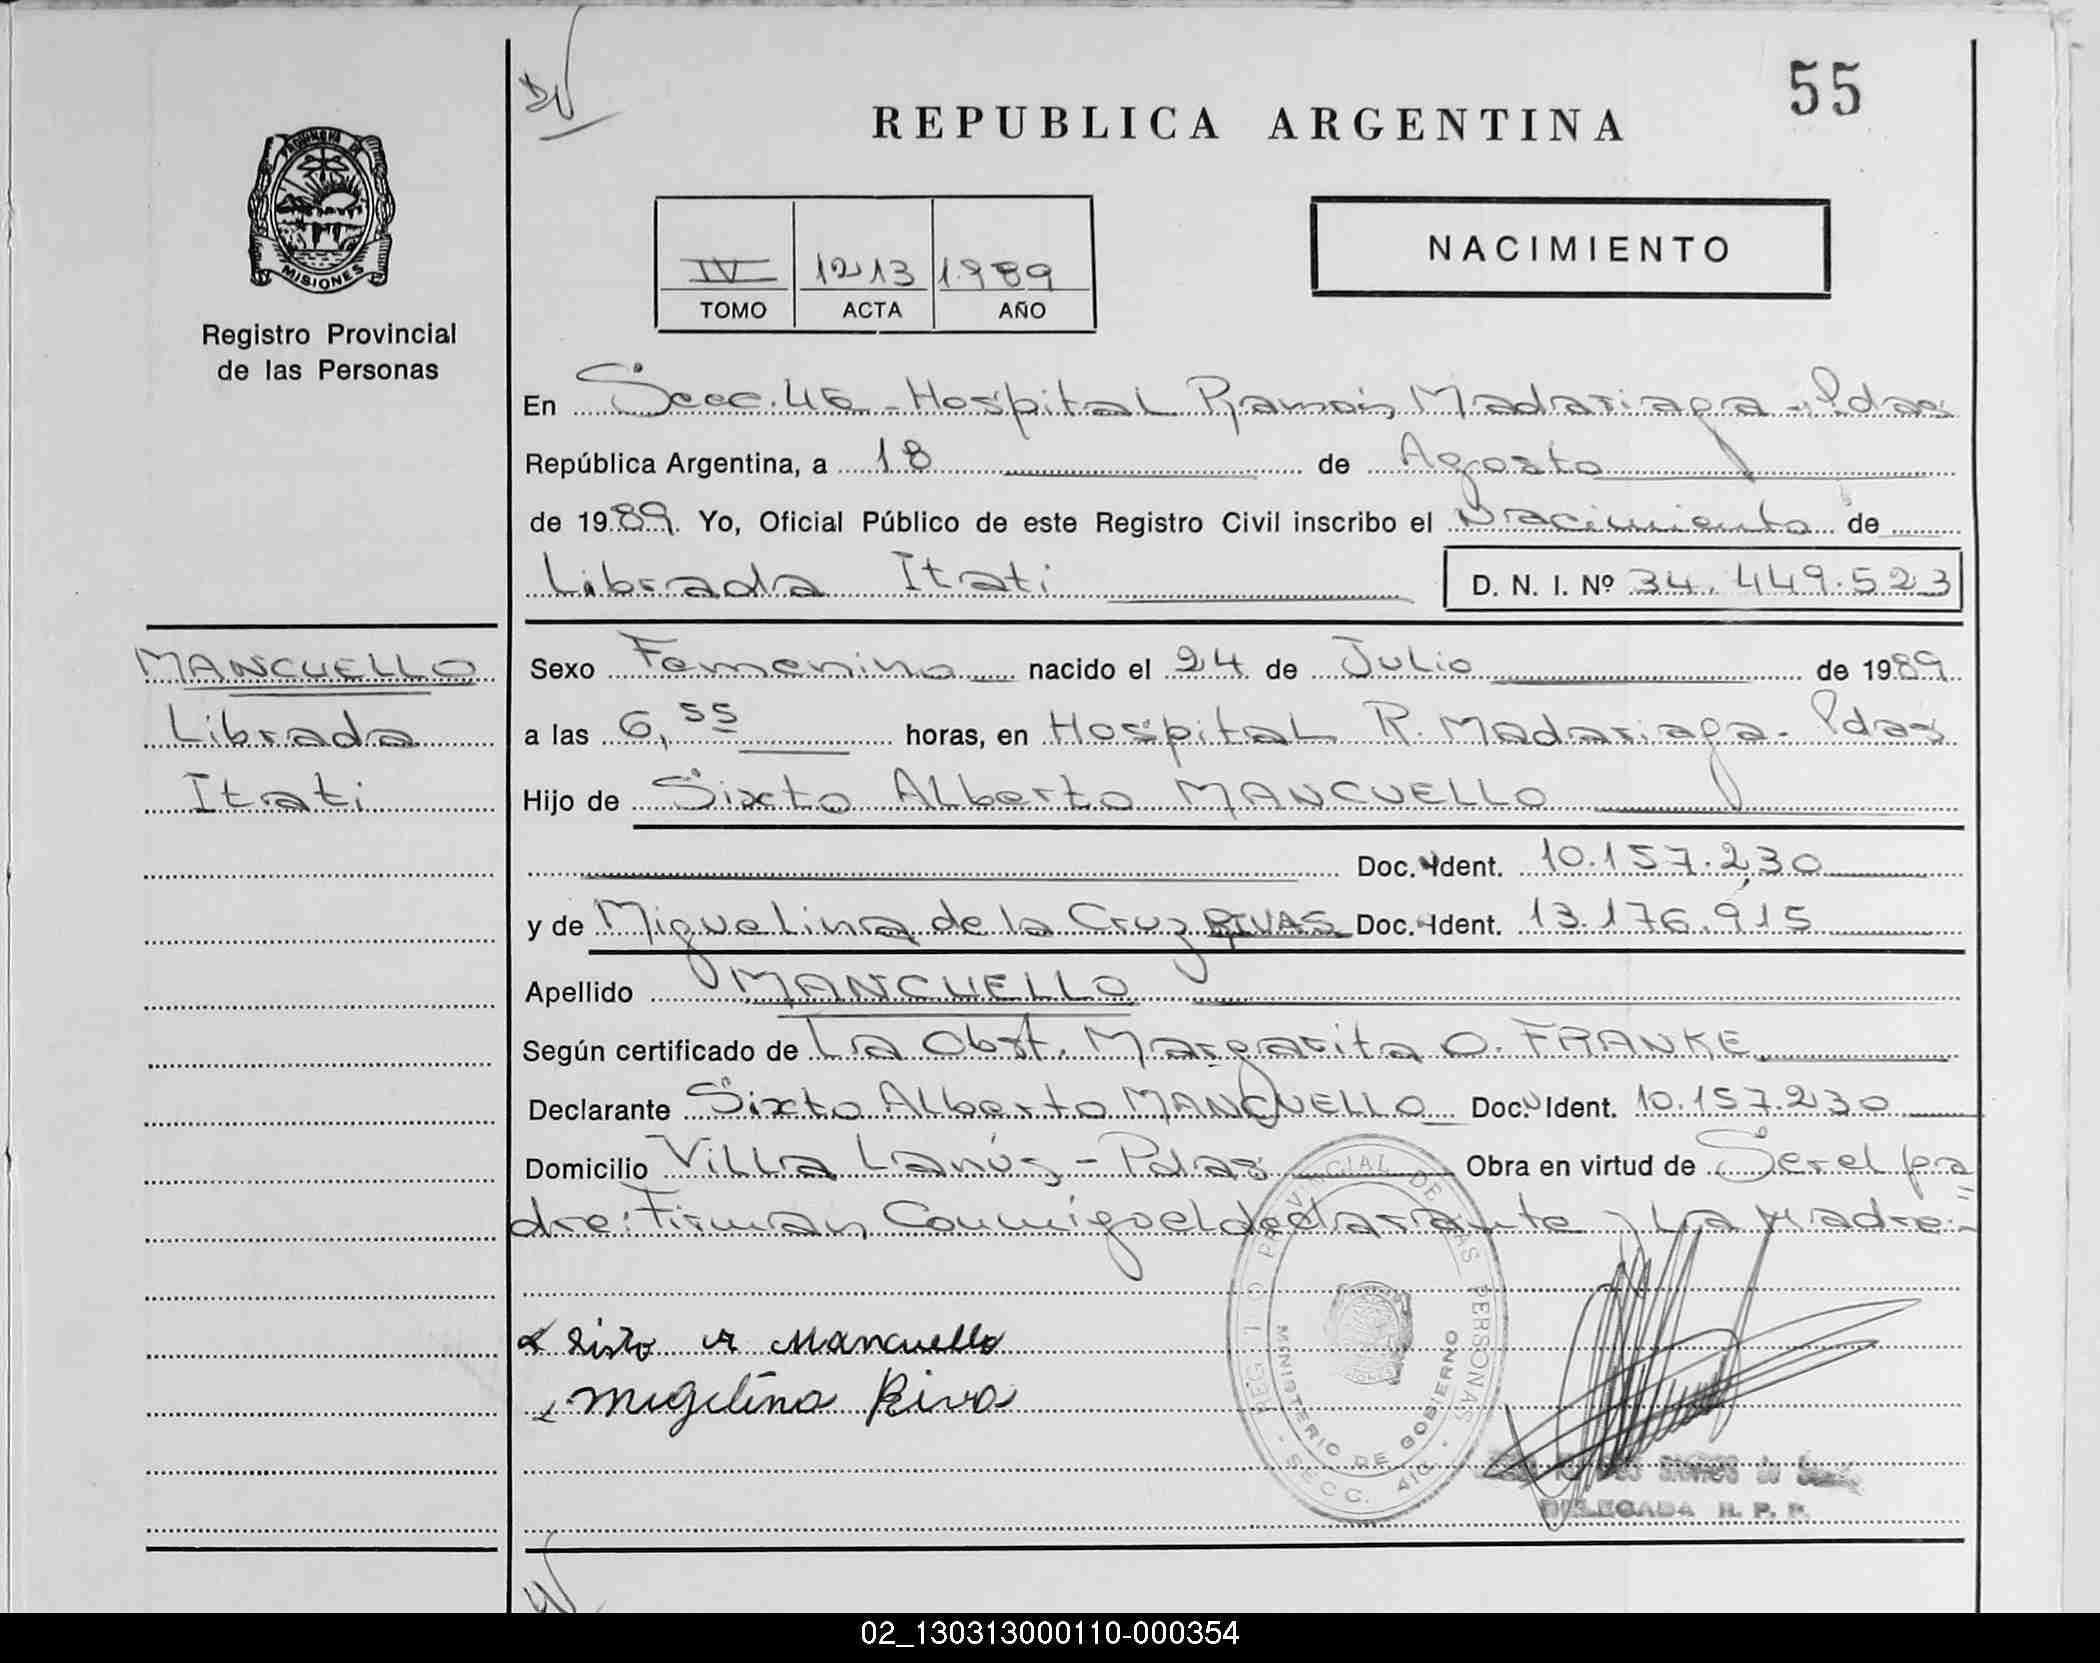 55
REPUBLICA ARGENTINA
PROVINCIA DE
MISIONES
Registro Provincial
de las Personas
NACIMIENTO
IV 1213 1.989
TOMO ACTA AÑO
En Secc. 46 - Hospital Ramón Madariaga - Pdas
República Argentina, a 18 de Agosto
de 1989. Yo, Oficial Público de este Registro Civil inscribo el Nacimiento de
Librada Itati D. N. I. Nº 34.449.523
MANCUELLO
Librada
Itati
Sexo Femenino nacido el 24 de Julio de 1989
a las 6,55 horas, en Hospital R. Madariaga - Pdas
Hijo de Sixto Alberto MANCUELLO
Doc. Ident. 10.157.230
y de Miguelina de la Cruz RIVAS Doc. Ident. 13.176.915
Apellido MANCUELLO
Según certificado de La Obst. Margarita O. FRANKE
Declarante Sixto Alberto MANCUELLO Doc. Ident. 10.157.230
Domicilio Villa Lanús - Pdas Obra en virtud de Ser el pa
dre: Firman Conmigo el declarante y La Madre.-
Sisto A Mancuello
Migelina Riva
REGISTRO PROVINCIAL DE LAS PERSONAS
MINISTERIO DE GOBIERNO
SECC.
DELEGADA R. P. P.
02_130313000110-000354